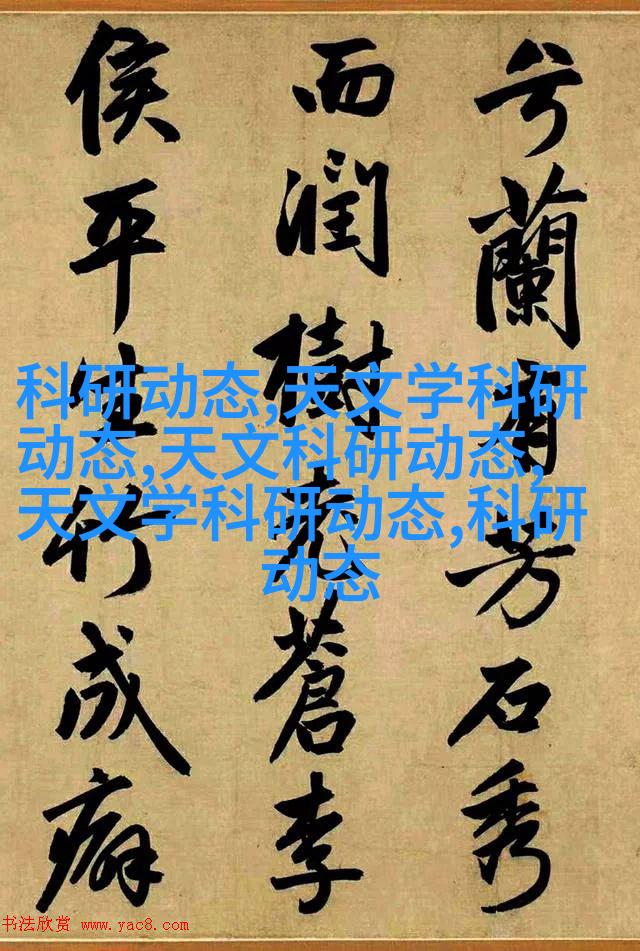 兮蘭有芳石秀
而潤樹蒼李
侯平生竹成癖
科研动态,天文学科研
动态,天文科研动态,
天文学科研动态,科研
动态
书法欣赏 www.yac8.com